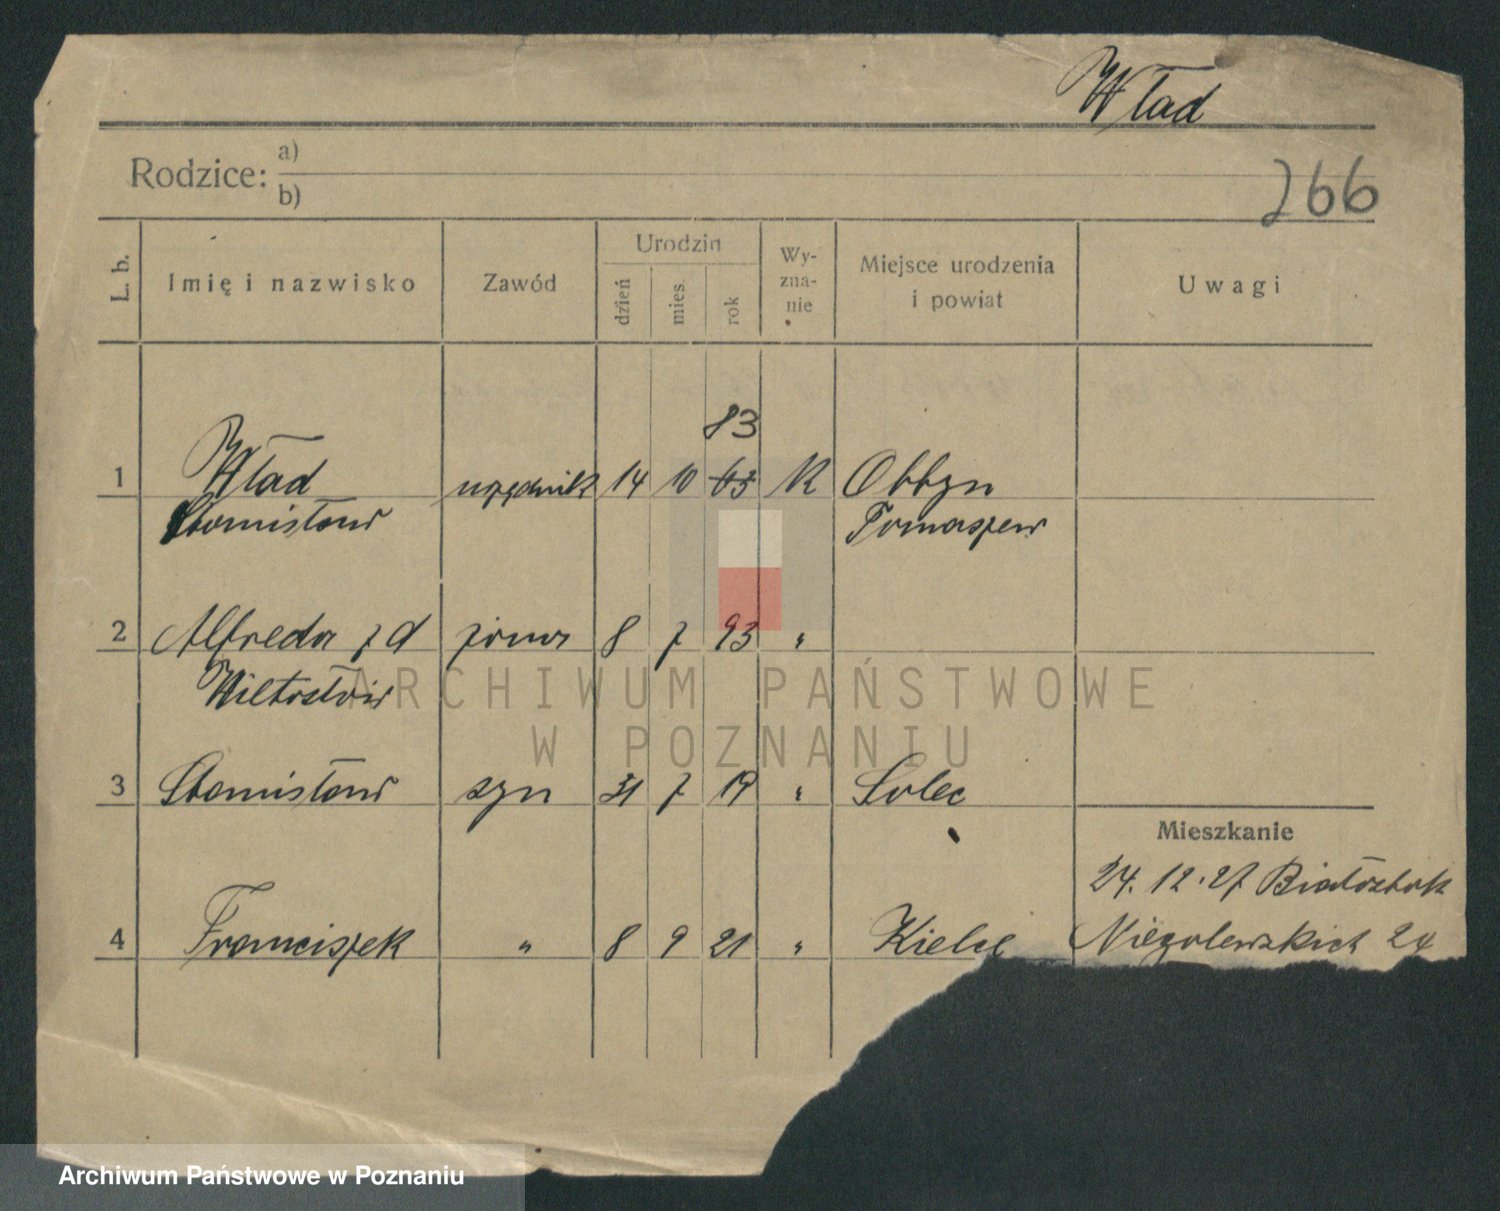 Wład
Rodzice: a)
b)
266
L. b.
Imię i nazwisko
Zawód
Urodzin
dzień
mies.
rok
Wy-
zna-
nie
Miejsce urodzenia
i powiat
Uwagi
83
1 Wład urzędnik 14 10 63 K
Stanisław Tomaszew
2 Alfreda z d żona 8 7 93 "
3 Stanisław syn 31 7 19 " Solec
Mieszkanie
24.12.27 Białostok
4 Franciszek " 8 9 21 " Kielce Niegolewskich 24
ARCHIWUM PAŃSTWOWE
W POZNANIU
Archiwum Państwowe w Poznaniu